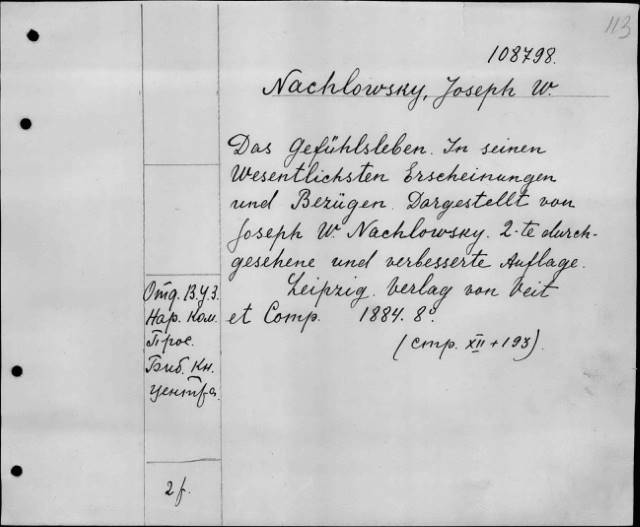 113
108798.
Nachlowsky, Joseph W.
Das Gefühlsleben. In seinen
Wesentlichsten Erscheinungen
und Bezügen. Dargestellt von
Joseph W. Nachlowsky. 2-te durch-
gesehene und verbesserte Auflage.
Leipzig. Verlag von Veit
et Comp. 1884. 8°.
(стр. XII + 193).
Отд. В.У.З.
Нар. Ком.
Прос.
Биб. Кн.
Центра.
2 f.